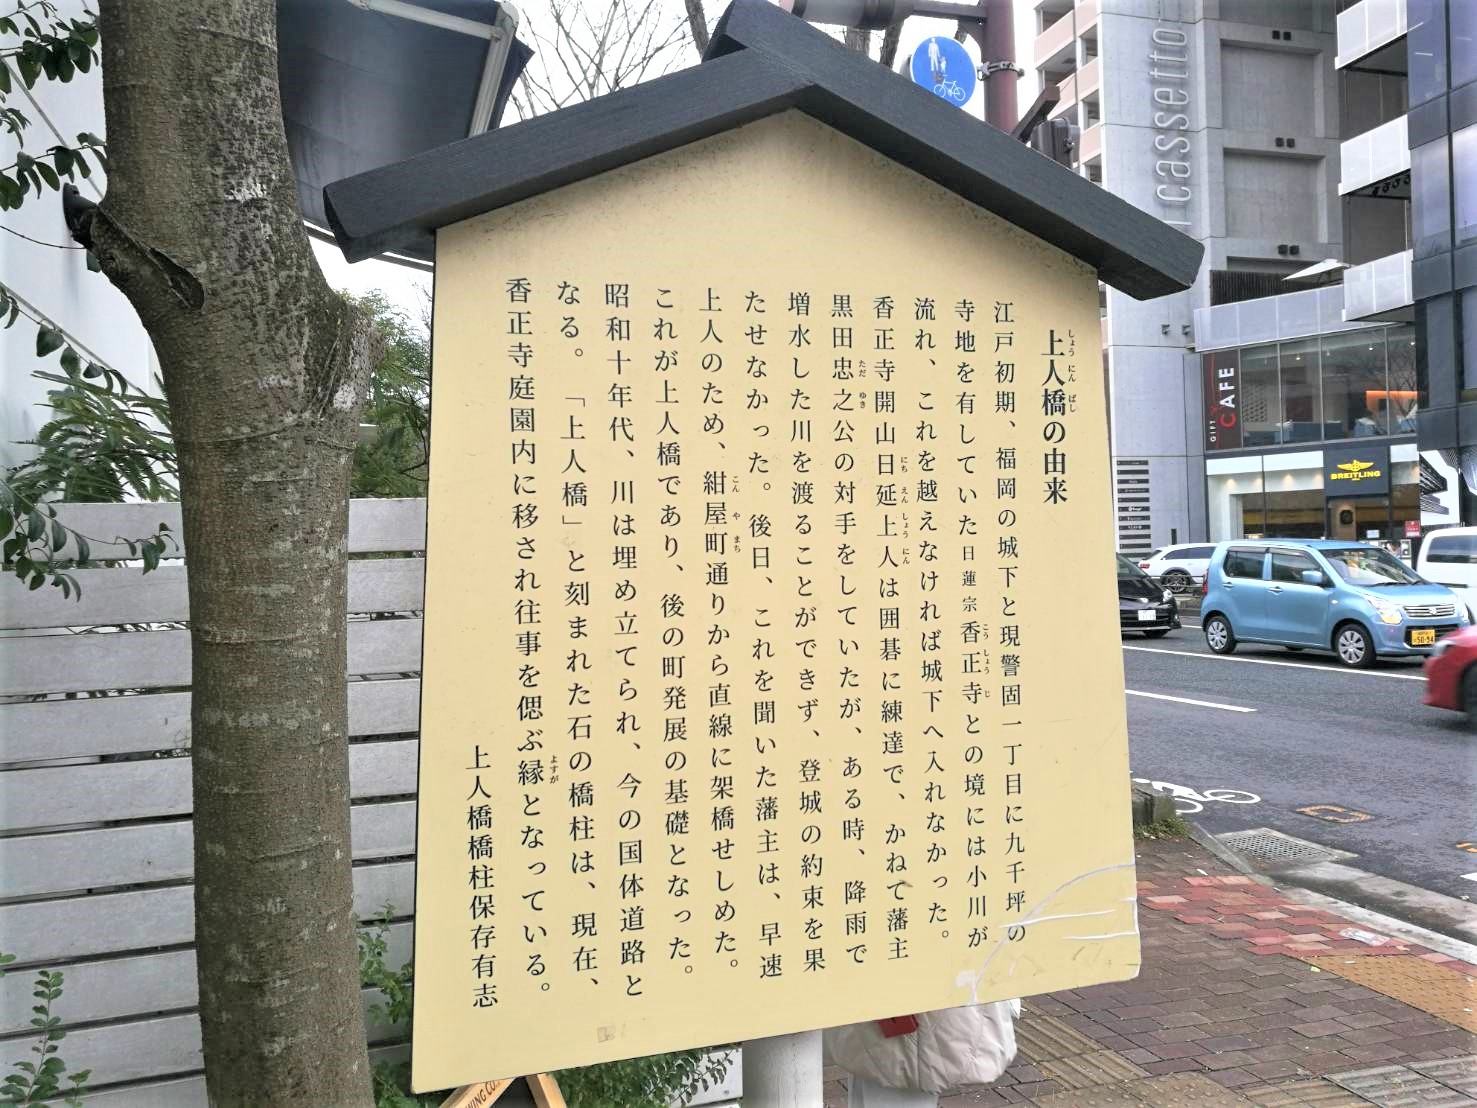 上人橋の由来
江戸初期、福岡の城下と現警固一丁目に九千坪の
寺地を有していた日蓮宗香正寺との境には小川が
流れ、これを越えなければ城下へ入れなかった。
香正寺開山日延上人は囲碁に練達で、かねて藩主
黒田忠之公の対手をしていたが、ある時、降雨で
増水した川を渡ることができず、登城の約束を果
たせなかった。後日、これを聞いた藩主は、早速
上人のため、紺屋町通りから直線に架橋せしめた。
これが上人橋であり、後の町発展の基礎となった。
昭和十年代、川は埋め立てられ、今の国体道路と
なる。「上人橋」と刻まれた石の橋柱は、現在、
香正寺庭園内に移され往事を偲ぶ縁となっている。
上人橋橋柱保存有志
cassetto
GIFT CAFE
BREITLING